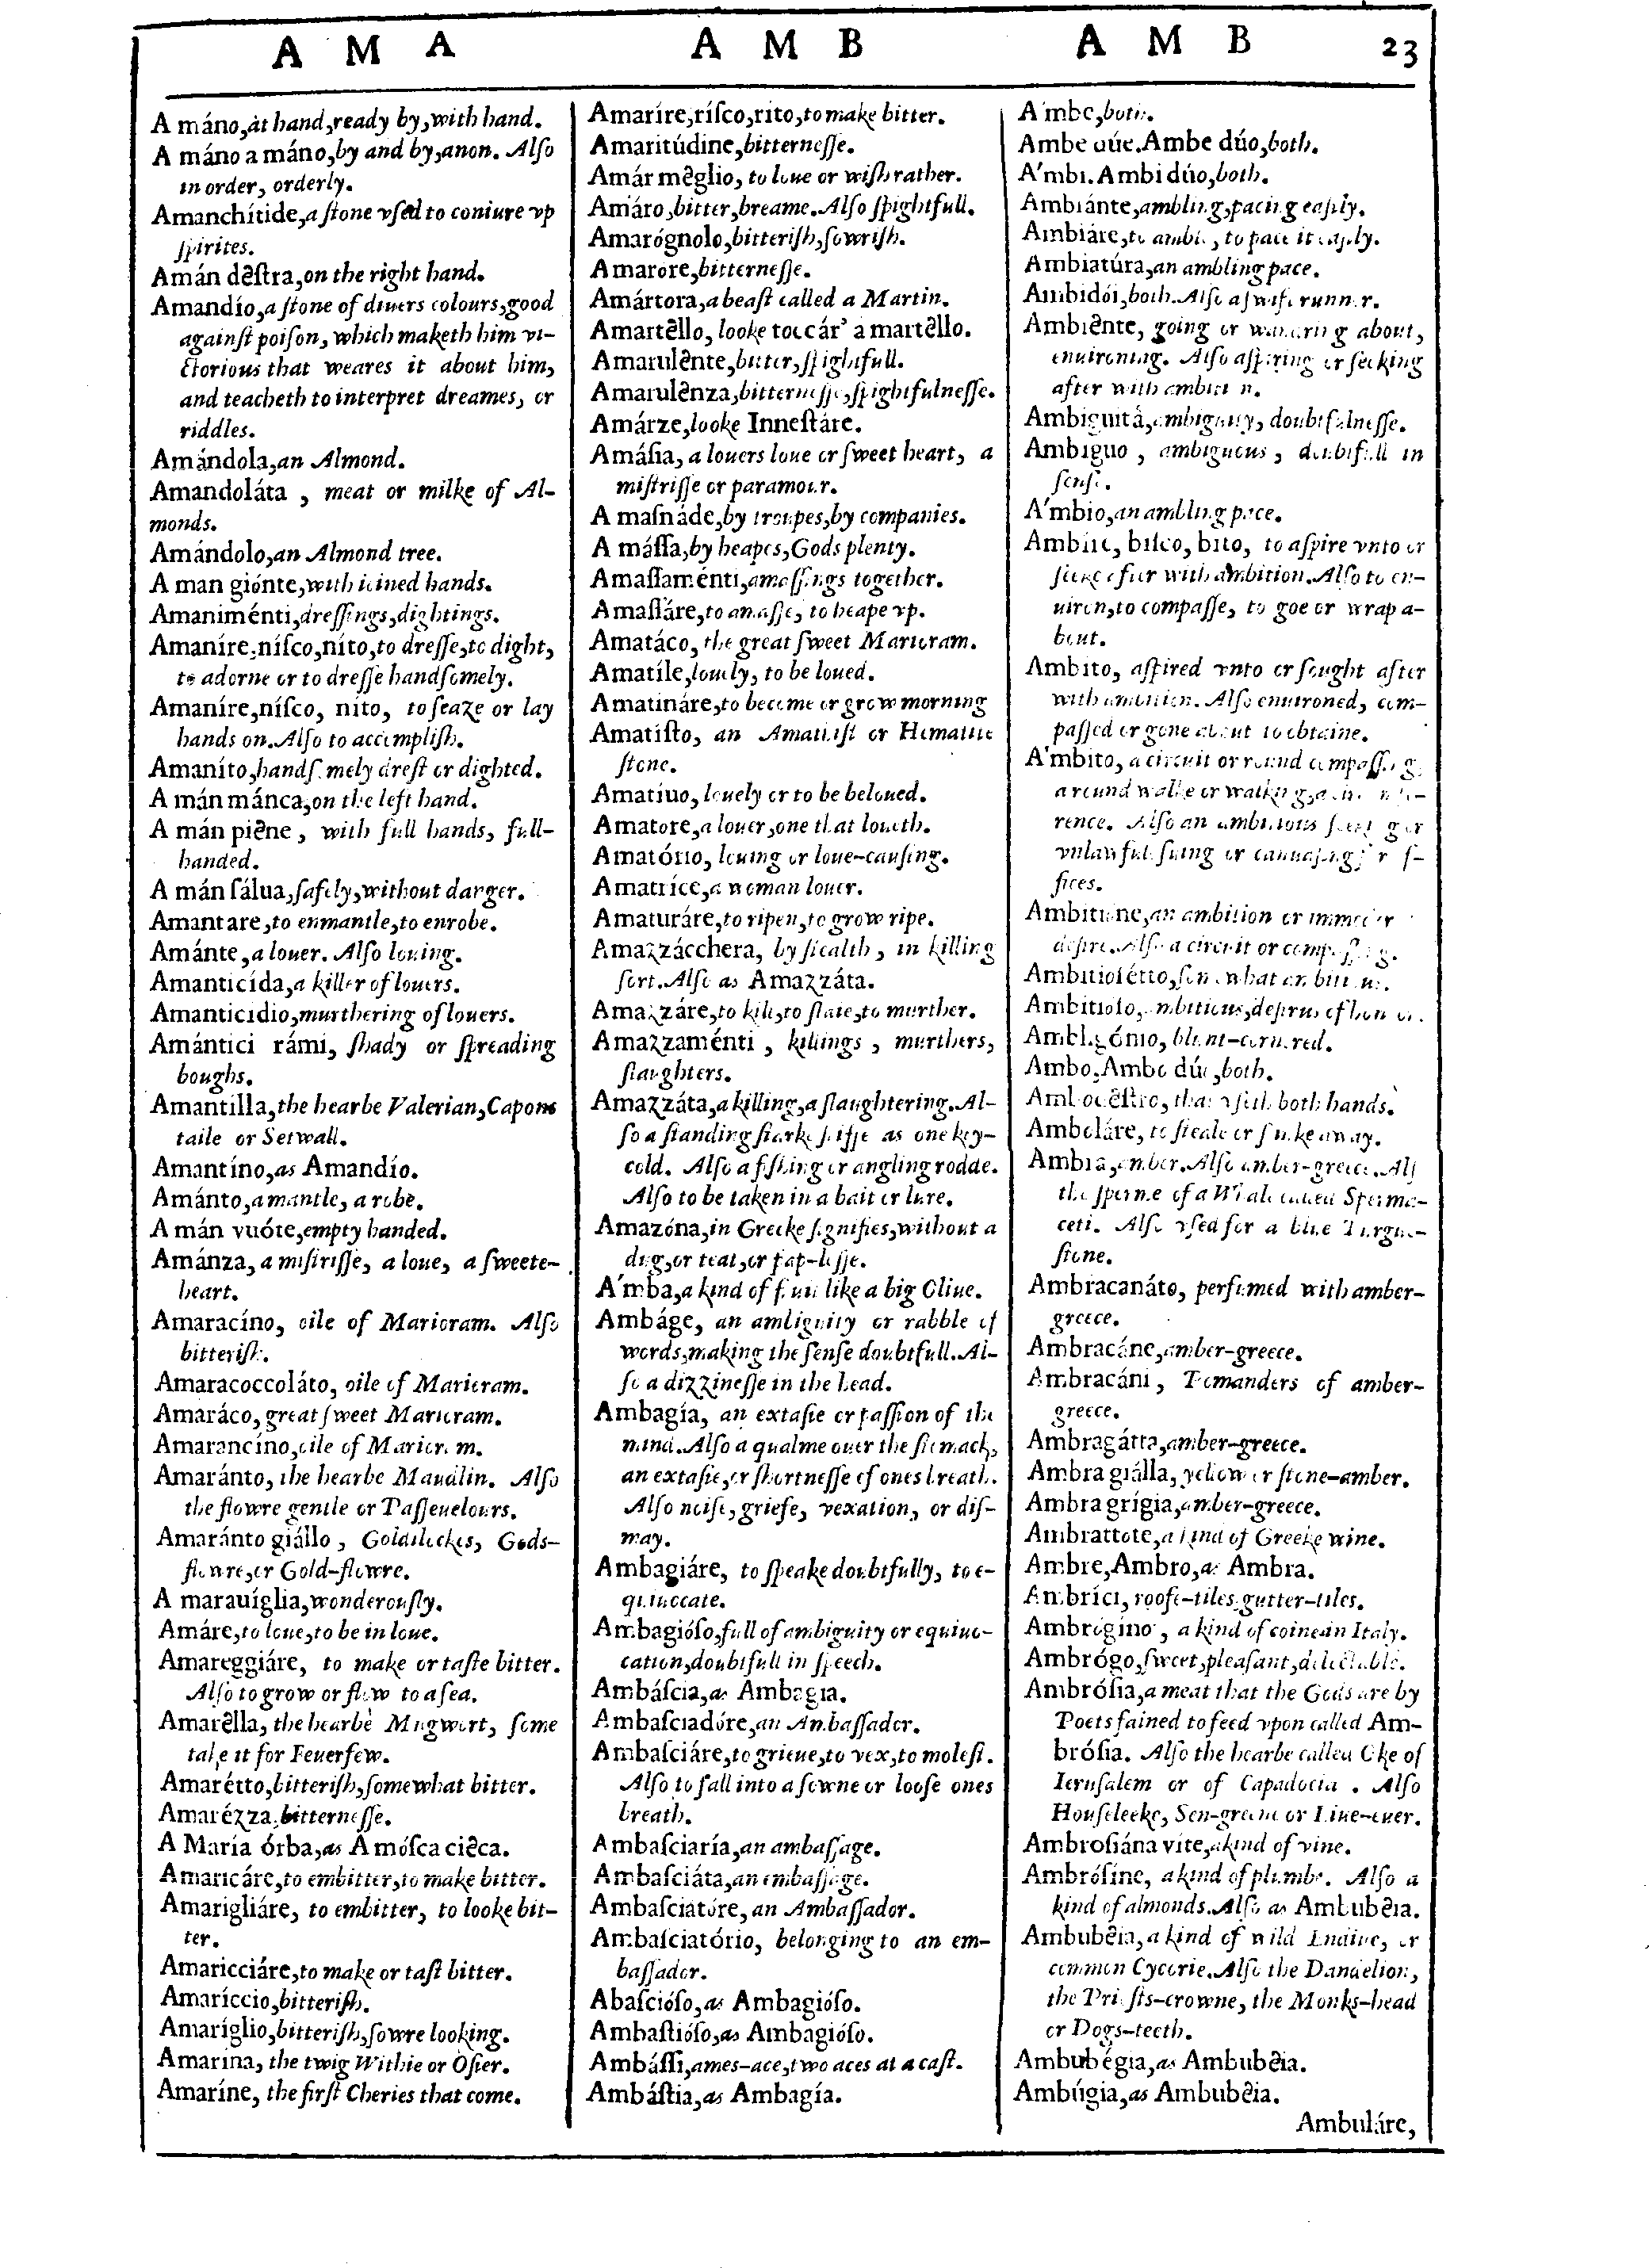 A M A
A M B
A M B 23
A máno, at hand, ready by, with hand.
A máno a máno, by and by, anon. Alſo
in order, orderly.
Amanchítide, a ſtone vſed to coniure vp
ſpirites.
Amán dêſtra, on the right hand.
Amandío, a ſtone of diuers colours, good
againſt poiſon, which maketh him vi-
ctorious that weares it about him,
and teacheth to interpret dreames, or
riddles.
Amándola, an Almond.
Amandoláta, meat or milke of Al-
monds.
Amándolo, an Almond tree.
A man giónte, with ioined hands.
Amaniménti, dreſſings, dightings.
Amaníre, níſco, níto, to dreſſe, to dight,
to adorne or to dreſſe handſomely.
Amaníre, níſco, nito, to ſeaze or lay
hands on. Alſo to accompliſh.
Amaníto, handſomely dreſt or dighted.
A mán mánca, on the left hand.
A mán piêne, with full hands, full-
handed.
A mán ſálua, ſafely, without danger.
Amantare, to enmantle, to enrobe.
Amánte, a louer. Alſo louing.
Amanticída, a killer of louers.
Amanticidio, murthering of louers.
Amántici rámi, ſhady or ſpreading
boughs.
Amantilla, the hearbe Valerian, Capons
taile or Setwall.
Amantíno, as Amandío.
Amánto, a mantle, a robe.
A mán vuóte, empty handed.
Amánza, a miſtriſſe, a loue, a ſweete-
heart.
Amaracíno, oile of Marioram. Alſo
bitteriſh.
Amaracoccoláto, oile of Marioram.
Amaráco, great ſweet Marioram.
Amarancíno, oile of Marioram.
Amaránto, the hearbe Maudlin. Alſo
the flowre gentle or Paſſeuelours.
Amaránto giállo, Goldilockes, Gods-
flowre, or Gold-flowre.
A marauíglia, wonderouſly.
Amáre, to loue, to be in loue.
Amareggiáre, to make or taſte bitter.
Alſo to grow or flow to a ſea.
Amarêlla, the hearbe Mugwort, ſome
take it for Feuerfew.
Amarétto, bitteriſh, ſomewhat bitter.
Amarézza, bitterneſſe.
A María órba, as A móſca ciêca.
Amaricáre, to embitter, to make bitter.
Amarigliáre, to embitter, to looke bit-
ter.
Amaricciáre, to make or taſt bitter.
Amaríccio, bitteriſh.
Amaríglio, bitteriſh, ſowre looking.
Amarina, the twig Withie or Oſier.
Amaríne, the firſt Cheries that come.
Amaríre, ríſco, rito, to make bitter.
Amaritúdine, bitterneſſe.
Amár mêglio, to loue or wiſh rather.
Amáro, bitter, breame. Alſo ſpightfull.
Amarógnolo, bitteriſh, ſowriſh.
Amarore, bitterneſſe.
Amártora, a beaſt called a Martin.
Amartêllo, looke toccár' a martêllo.
Amarulênte, bitter, ſpightfull.
Amarulênza, bitterneſſe, ſpightfulneſſe.
Amárze, looke Inneſtáre.
Amáſia, a louers loue or ſweet heart, a
miſtriſſe or paramour.
A maſnáde, by troupes, by companies.
A máſſa, by heapes, Gods plenty.
Amaſſaménti, amaſſings together.
Amaſſáre, to amaſſe, to heape vp.
Amatáco, the great ſweet Marioram.
Amatíle, louely, to be loued.
Amatináre, to become or grow morning
Amatíſto, an Amatiſt or Hematite
ſtone.
Amatiuo, louely or to be beloued.
Amatore, a louer, one that loueth.
Amatório, louing or loue-cauſing.
Amatríce, a woman louer.
Amaturáre, to ripen, to grow ripe.
Amazzácchera, by ſtealth, in killing
ſort. Alſo as Amazzáta.
Amazzáre, to kill, to ſlaie, to murther.
Amazzaménti, killings, murthers,
ſlaughters.
Amazzáta, a killing, a ſlaughtering. Al-
ſo a ſtanding ſtarke ſtiffe as one key-
cold. Alſo a fiſhing or angling rodde.
Alſo to be taken in a bait or lure.
Amazóna, in Greeke ſignifies, without a
dug, or teat, or pap-leſſe.
A'mba, a kind of fruit like a big Oliue.
Ambáge, an ambiguity or rabble of
words, making the ſenſe doubtfull. Al-
ſo a dizzineſſe in the head.
Ambagía, an extaſie or paſſion of the
mind. Alſo a qualme ouer the ſtomack,
an extaſie, or ſhortneſſe of ones breath.
Alſo noiſe, griefe, vexation, or diſ-
may.
Ambagiáre, to ſpeake doubtfully, to e-
quiuocate.
Ambagióſo, full of ambiguity or equiuo-
cation, doubtfull in ſpeech.
Ambáſcia, as Ambagia.
Ambaſciadóre, an Ambaſſador.
Ambaſciáre, to grieue, to vex, to moleſt.
Alſo to fall into a ſowne or looſe ones
breath.
Ambaſciaría, an ambaſſage.
Ambaſciáta, an embaſſage.
Ambaſciatóre, an Ambaſſador.
Ambaſciatório, belonging to an em-
baſſador.
Abaſcióſo, as Ambagióſo.
Ambaſtióſo, as Ambagióſo.
Ambáſſi, ames-ace, two aces at a caſt.
Ambáſtia, as Ambagía.
A'mbe, both.
Ambe dúe. Ambe dúo, both.
A'mbi. Ambi dúo, both.
Ambiánte, ambling, pacing eaſily.
Ambiáre, to amble, to pace it eaſily.
Ambiatúra, an ambling pace.
Ambidói, both. Alſo a ſwift runner.
Ambiênte, going or wandring about,
enuironing. Alſo aſpiring or ſeeking
after with ambition.
Ambiguitá, ambiguity, doubtfulneſſe.
Ambíguo, ambiguous, doubtfull in
ſenſe.
A'mbio, an ambling pace.
Ambíre, bíſco, bito, to aſpire vnto or
ſeeke after with ambition. Alſo to en-
uiron, to compaſſe, to goe or wrap a-
bout.
Ambito, aſpired vnto or ſought after
with ambition. Alſo enuironed, com-
paſſed or gone about to obtaine.
A'mbito, a circuit or round compaſſing,
a round walke or walking,
rence. Alſo an ambitious
vnlawfull ſuing or canuaſing for of-
fices.
Ambitióne, an ambition or
deſire. Alſo a circuit or compaſſing.
Ambitioſétto, ſomewhat ambitious.
Ambitioſo, ambitious, deſirus of honor.
Ambligónio, blunt-cornered.
Ambo, Ambo dúe, both.
Ambodêſtro, that vſeth both hands.
Amboláre, to ſteale or ſneake away.
Ambra, amber. Alſo amber-greece. Alſo
the ſperme of a Whale called Sperma-
ceti. Alſo vſed for a blue Turque-
ſtone.
Ambracanáto, perfumed with amber-
greece.
Ambracáne, amber-greece.
Ambracáni, Pomanders of amber-
greece.
Ambragátta, amber-greece.
Ambra giálla, yellow or ſtone-amber.
Ambra grígia, amber-greece.
Ambrattote, a kind of Greeke wine.
Ambre, Ambro, as Ambra.
Ambríci, roofe-tiles, gutter-tiles.
Ambrogino, a kind of coine in Italy.
Ambrógo, ſweet, pleaſant, delectable.
Ambróſia, a meat that the Gods are by
Poets fained to feed vpon called Am-
bróſia. Alſo the hearbe called Oke of
Ieruſalem or of Capadocia. Alſo
Houſeleeke, Sen-greene or Liue-euer.
Ambroſiána vite, a kind of vine.
Ambróſine, a kind of plumbe. Alſo a
kind of almonds. Alſo as Ambubêia.
Ambubêia, a kind of wild Endiue, or
common Cycorie. Alſo the Dandelion,
the Prieſts-crowne, the Monks-head
or Dogs-teeth.
Ambubégia, as Ambubêia.
Ambúgia, as Ambubêia.
Ambuláre,